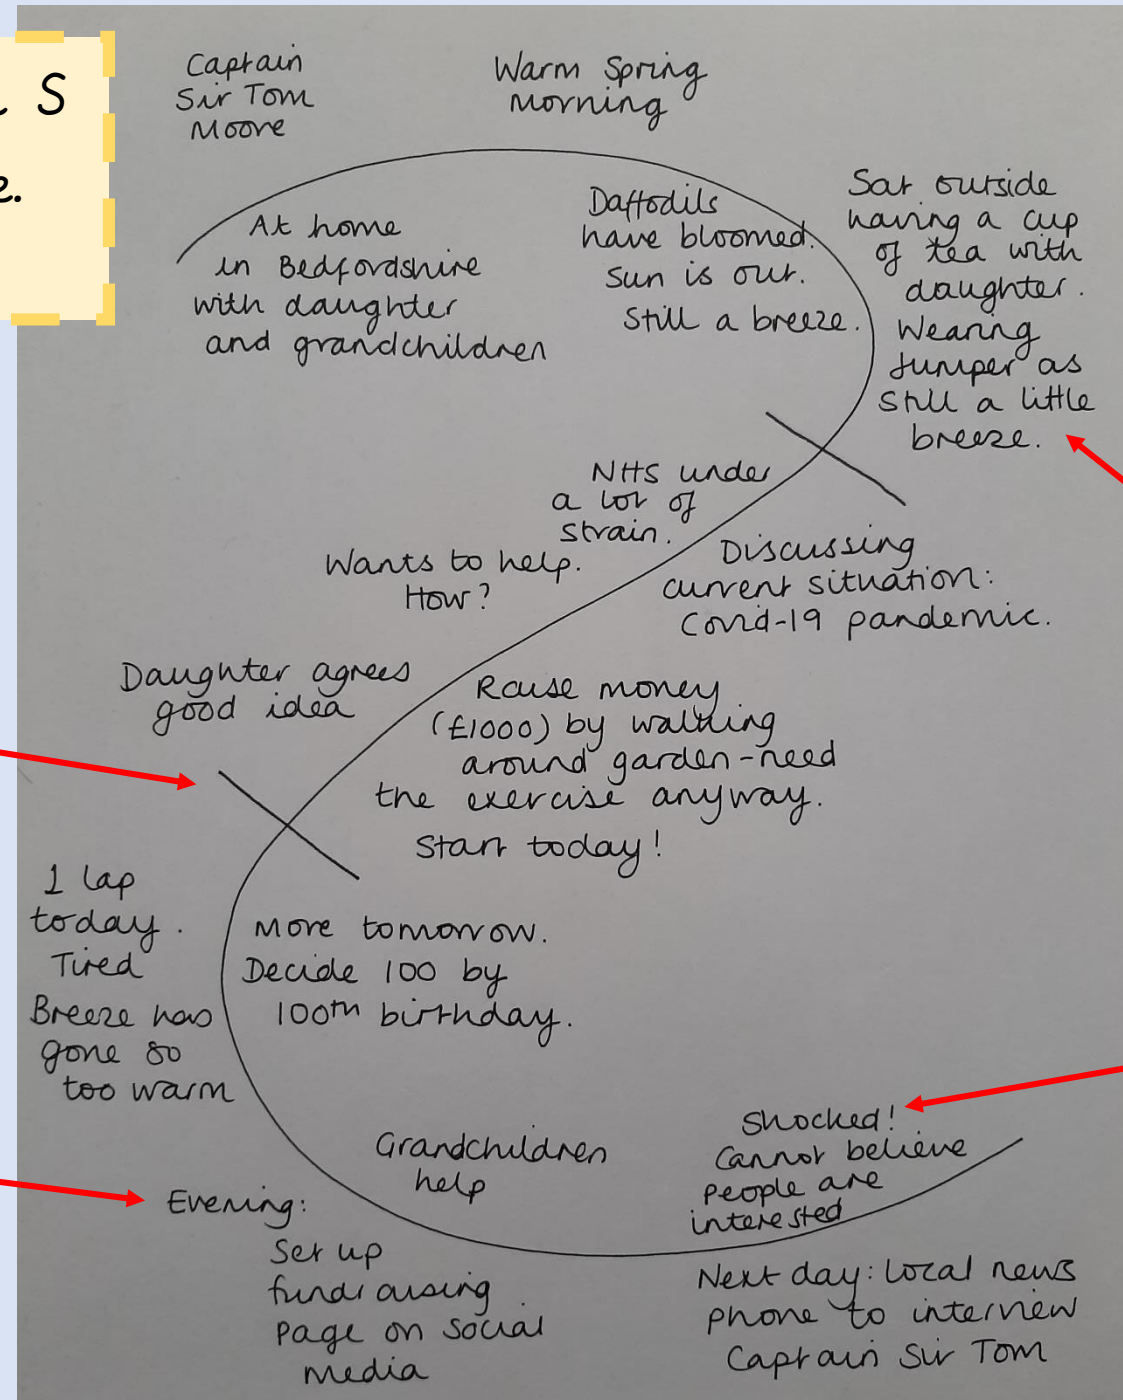 S
e.
Captain
Sir Tom
Moore
Warm Spring
Morning
At home
in Bedfordshire
with daughter
and grandchildren
Daffodils
have bloomed.
Sun is out.
Still a breeze.
Sat outside
having a cup
of tea with
daughter.
Wearing
Jumper as
still a little
breeze.
NHS under
a lot of
strain.
Discussing
current situation:
Covid-19 pandemic.
Wants to help.
How?
Daughter agrees
good idea
Raise money
(£1000) by walking
around garden-need
the exercise anyway.
Start today!
1 lap
today.
Tired
Breeze has
gone so
too warm
More tomorrow.
Decide 100 by
100th birthday.
Evening:
Set up
fundraising
page on social
media
Grandchildren
help
Shocked!
Cannot believe
people are
interested
Next day: local news
phone to interview
Captain Sir Tom